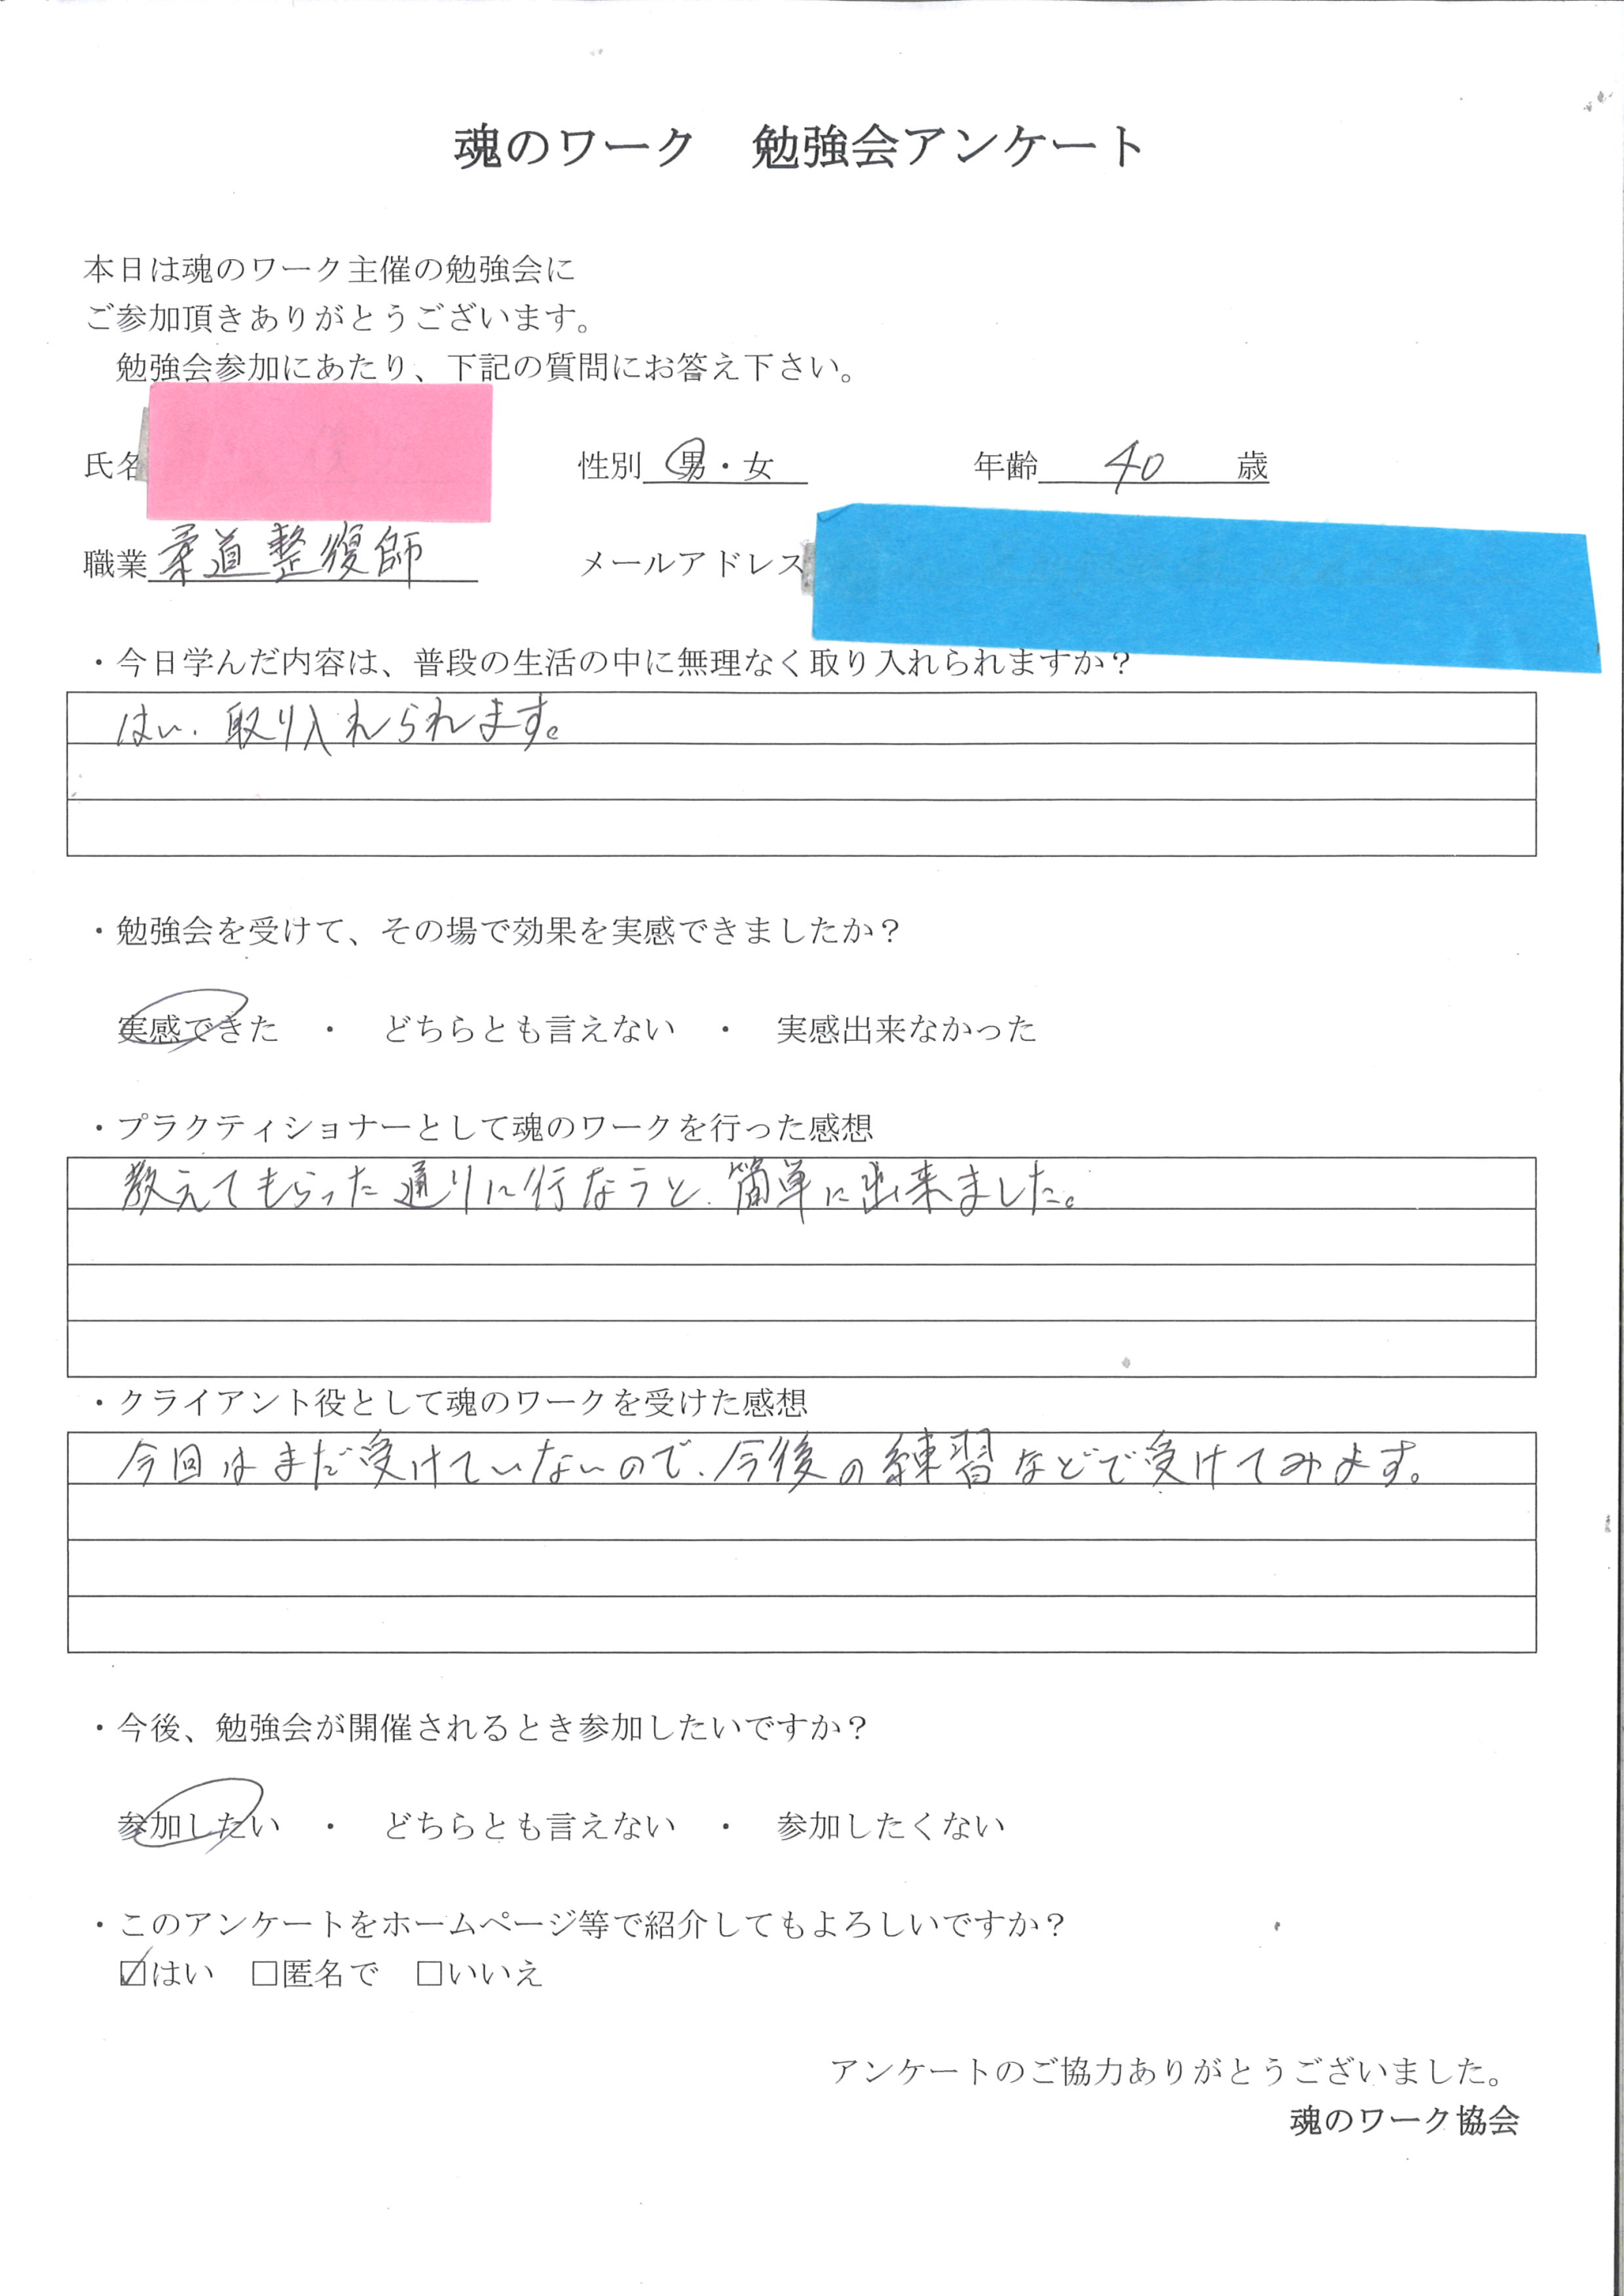 魂のワーク　勉強会アンケート
本日は魂のワーク主催の勉強会に
ご参加頂きありがとうございます。
勉強会参加にあたり、下記の質問にお答え下さい。
氏名　性別 男・女　年齢 40 歳
職業 柔道整復師　メールアドレス
・今日学んだ内容は、普段の生活の中に無理なく取り入れられますか？
はい、取り入れられます。
・勉強会を受けて、その場で効果を実感できましたか？
実感できた　・　どちらとも言えない　・　実感出来なかった
・プラクティショナーとして魂のワークを行った感想
教えてもらった通りに行なうと、簡単に出来ました。
・クライアント役として魂のワークを受けた感想
今回はまだ受けていないので、今後の練習などで受けてみます。
・今後、勉強会が開催されるとき参加したいですか？
参加したい　・　どちらとも言えない　・　参加したくない
・このアンケートをホームページ等で紹介してもよろしいですか？
☑はい　□匿名で　□いいえ
アンケートのご協力ありがとうございました。
魂のワーク協会